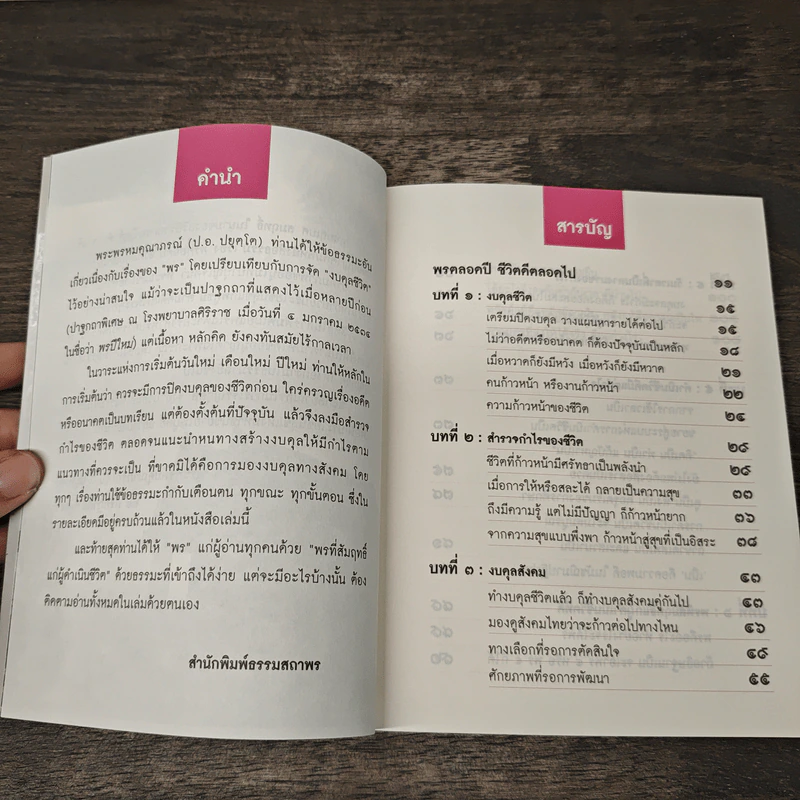 คำนำ
พระพรหมคุณาภรณ์ (ป.อ. ปยุตฺโต) ท่านได้ให้ข้อธรรมะอัน
เกี่ยวเนื่องกับเรื่องของ "พร" โดยเปรียบเทียบกับการจัด "งบดุลชีวิต"
ไว้อย่างน่าสนใจ แม้ว่าจะเป็นปาฐกถาที่แสดงไว้เมื่อหลายปีก่อน
(ปาฐกถาพิเศษ ณ โรงพยาบาลศิริราช เมื่อวันที่ ๔ มกราคม ๒๕๓๔
ในชื่อว่า พรปีใหม่) แต่เนื้อหา หลักคิด ยังคงทันสมัยไร้กาลเวลา
ในวาระแห่งการเริ่มต้นวันใหม่ เดือนใหม่ ปีใหม่ ท่านให้หลักใน
การเริ่มต้นว่า ควรจะมีการปิดงบดุลของชีวิตก่อน ใคร่ครวญเรื่องอดีต
หรืออนาคตเป็นบทเรียน แต่ต้องตั้งต้นที่ปัจจุบัน แล้วจึงลงมือสำรวจ
กำไรของชีวิต ตลอดจนแนะนำหนทางสร้างงบดุลให้มีกำไรตาม
แนวทางที่ควรจะเป็น ที่ขาดมิได้คือการมองงบดุลทางสังคม โดย
ทุกๆ เรื่องท่านใช้ข้อธรรมะกำกับเตือนตน ทุกขณะ ทุกขั้นตอน ซึ่งใน
รายละเอียดมีอยู่ครบถ้วนแล้วในหนังสือเล่มนี้
และท้ายสุดท่านได้ให้ "พร" แก่ผู้อ่านทุกคนด้วย "พรที่สัมฤทธิ์
แก่ผู้ดำเนินชีวิต" ด้วยธรรมะที่เข้าถึงได้ง่าย แต่จะมีอะไรบ้างนั้น ต้อง
ติดตามอ่านทั้งหมดในเล่มด้วยตนเอง
สำนักพิมพ์ธรรมสภาพร
สารบัญ
พรตลอดปี ชีวิตดีตลอดไป ๑๑
บทที่ ๑ : งบดุลชีวิต ๑๕
เตรียมปิดงบดุล วางแผนหารายได้ต่อไป ๑๕
ไม่ว่าอดีตหรืออนาคต ก็ต้องปัจจุบันเป็นหลัก ๑๘
เมื่อหวาดก็ยังมีหวัง เมื่อหวังก็ยังมีหวาด ๒๑
คนก้าวหน้า หรืองานก้าวหน้า ๒๒
ความก้าวหน้าของชีวิต ๒๔
บทที่ ๒ : สำรวจกำไรของชีวิต ๒๙
ชีวิตที่ก้าวหน้ามีศรัทธาเป็นพลังนำ ๒๙
เมื่อการให้หรือสละได้ กลายเป็นความสุข ๓๓
ถึงมีความรู้ แต่ไม่มีปัญญา ก็ก้าวหน้ายาก ๓๖
จากความสุขแบบพึ่งพา ก้าวหน้าสู่สุขที่เป็นอิสระ ๓๘
บทที่ ๓ : งบดุลสังคม ๔๓
ทำงบดุลชีวิตแล้ว ก็ทำงบดุลสังคมคู่กันไป ๔๓
มองดูสังคมไทยว่าจะก้าวต่อไปทางไหน ๔๖
ทางเลือกที่รอการตัดสินใจ ๔๙
ศักยภาพที่รอการพัฒนา ๕๕